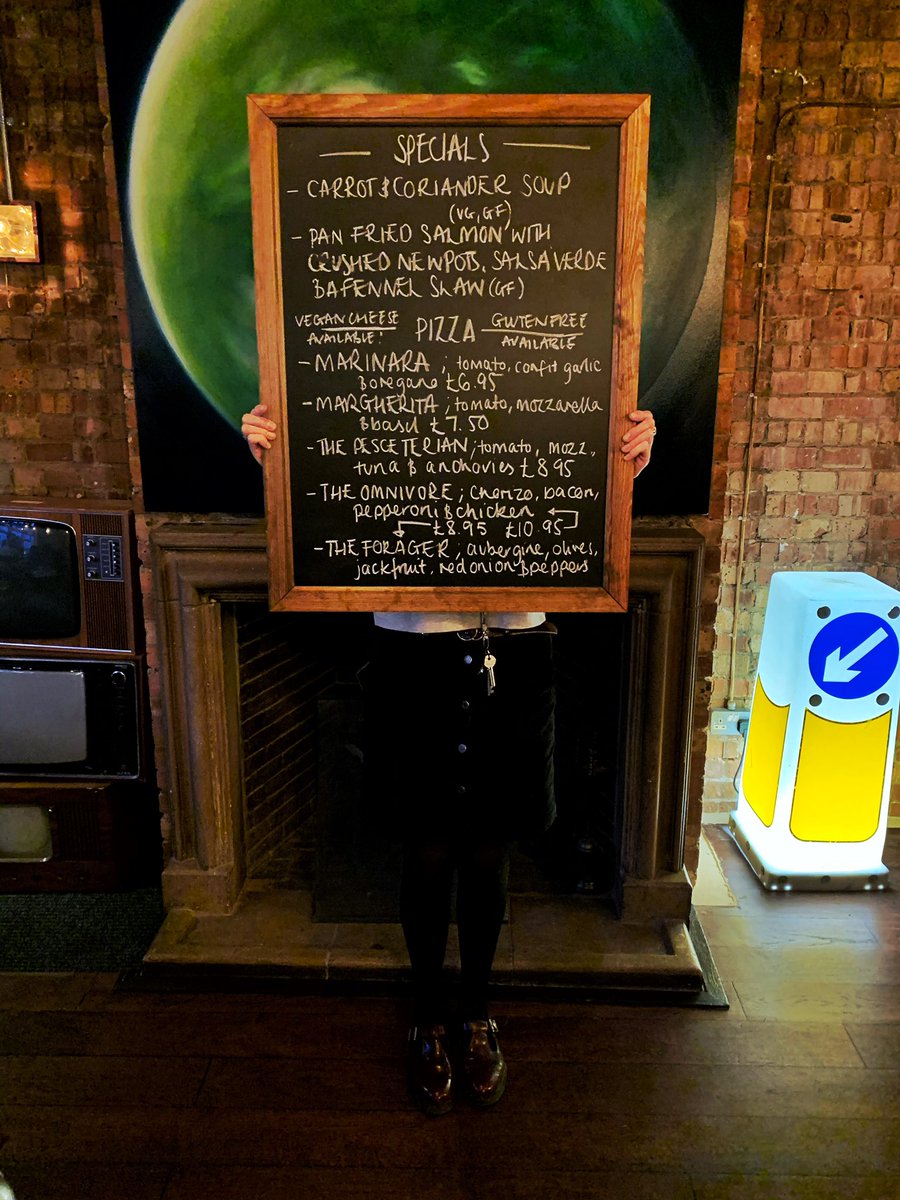 SPECIALS
- CARROT & CORIANDER SOUP
(VG, GF)
- PAN FRIED SALMON WITH
CRUSHED NEW POTS, SALSA VERDE
& A FENNEL SLAW (GF)
VEGAN CHEESE AVAILABLE! PIZZA GLUTEN FREE AVAILABLE
- MARINARA ; tomato, confit garlic
& oregano £6.95
- MARGHERITA ; tomato, mozzarella
& basil £7.50
- THE PESCETERIAN ; tomato, mozz.,
tuna & anchovies £8.95
- THE OMNIVORE ; chorizo, bacon,
pepperoni & chicken
£8.95 £10.95
- THE FORAGER ; aubergine, olives,
jackfruit, red onion & peppers